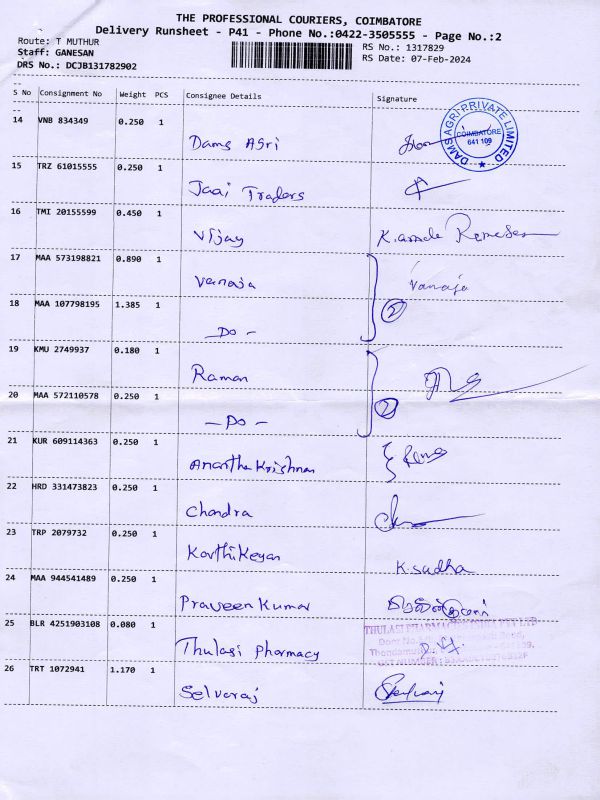 THE PROFESSIONAL COURIERS, COIMBATORE
Delivery Runsheet - P41 - Phone No.:0422-3505555 - Page No.:2
Route: T MUTHUR RS No.: 1317829
Staff: GANESAN RS Date: 07-Feb-2024
DRS No.: DCJB131782902
S No Consignment No Weight PCS Consignee Details Signature
14 VNB 834349 0.250 1 Dams Agri
DAMS AGRI PRIVATE LIMITED
COIMBATORE
641 109
15 TRZ 61015555 0.250 1 Jaai Traders
16 TMI 20155599 0.450 1 Vijay
17 MAA 573198821 0.890 1 Vanaja Vanaja
18 MAA 107798195 1.385 1 - Do - 2
19 KMU 2749937 0.180 1 Raman
20 MAA 572110578 0.250 1 - Do - 2
21 KUR 609114363 0.250 1 Anantha Krishnan
22 HRD 331473823 0.250 1 Chandra
23 TRP 2079732 0.250 1 Karthikeyan K. Sudha
24 MAA 944541489 0.250 1 Praveen Kumar
25 BLR 4251903108 0.080 1 Thulasi Pharmacy
26 TRT 1072941 1.170 1 Selvaraj